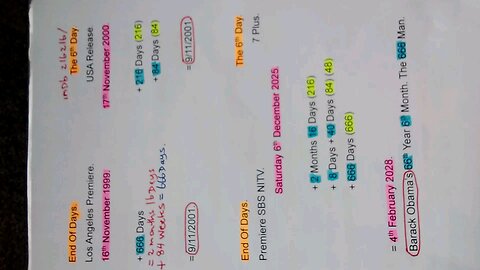 End Of Days.
Los Angeles Premiere.
16th November 1999.
+ 666 Days
= 2 months 16 Days
+ 84 weeks = 666 Days.
= 9/11/2001
imDb 216216/
The 6th Day.
USA Release.
17th November 2000.
+ 216 Days (216)
+ 84 Days (84)
= 9/11/2001
End Of Days.
Premiere SBS NITV.
The 6th Day.
7 Plus.
Saturday 6th December 2025.
+ 2 Months 16 Days (216)
+ 8 Days + 40 Days (84) (48)
+ 666 Days (666)
= 4th February 2028.
Barack Obama's 66th Year 6th Month. The 666 Man.